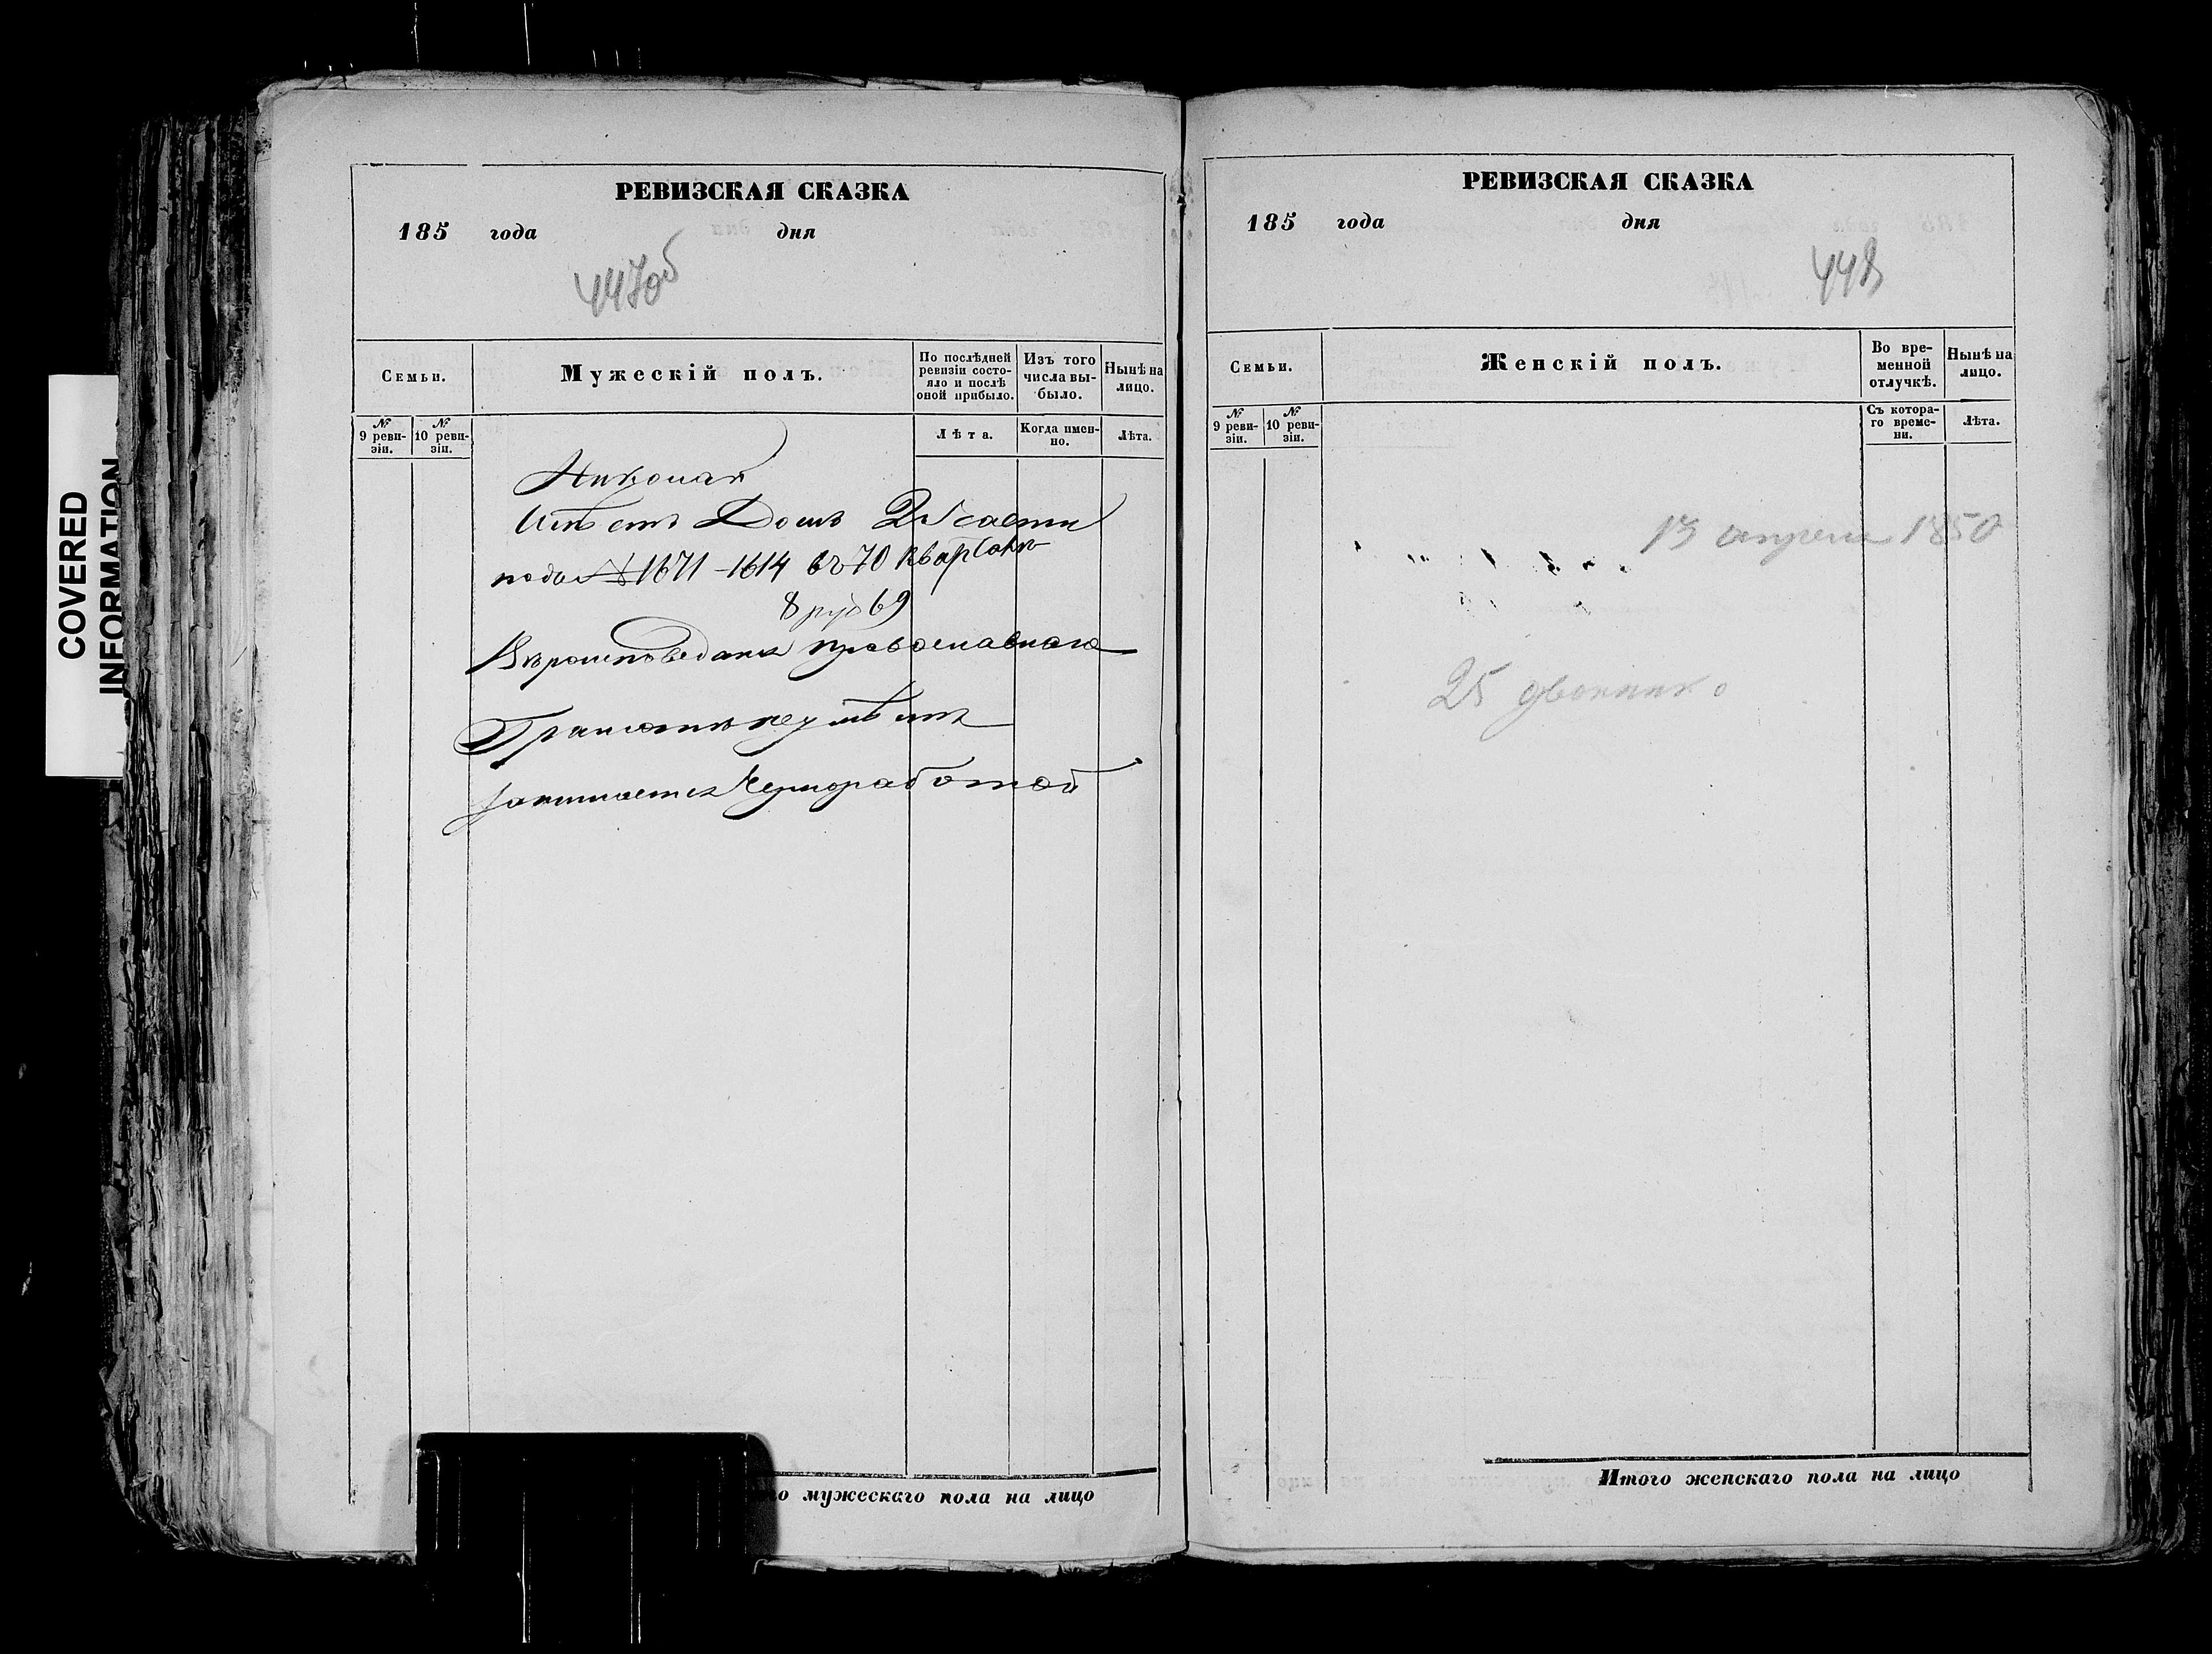 COVERED
INFORMATION
РЕВИЗСКАЯ СКАЗКА
185 года дня
447об
Семьи.
Мужескій полъ.
По послѣдней ревизіи состояло и послѣ оной прибыло.
Изъ того числа выбыло.
Нынѣ на лицо.
№ 9 ревизіи.
№ 10 ревизіи.
Лѣта.
Когда именно.
Лѣта.
Николай
Имѣетъ Домъ 2й части
подъ № 1671-1614 въ 70 квартале
8 руб 69
Вѣроисповеданія православнаго
Грамоте неумѣетъ
занимается Черноработой
о мужескаго пола на лицо
РЕВИЗСКАЯ СКАЗКА
185 года дня
448
Семьи.
Женскій полъ.
Во временной отлучкѣ.
Нынѣ на лицо.
№ 9 ревизіи.
№ 10 ревизіи.
Съ котораго времени.
Лѣта.
13 апреля 1850
25
Итого женскаго пола на лицо